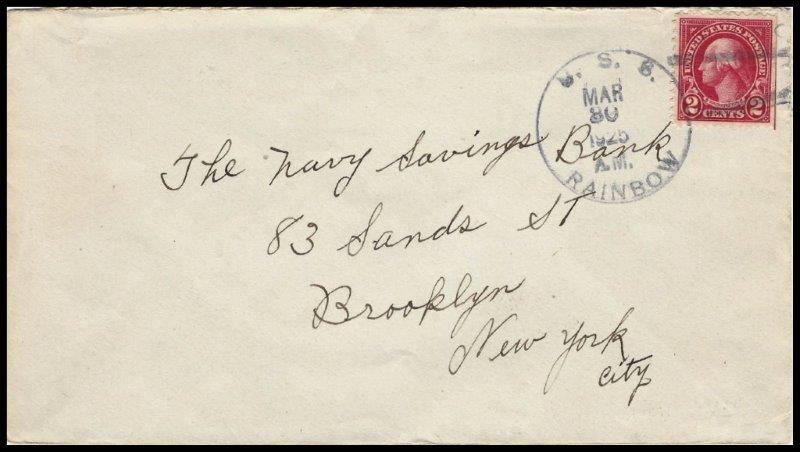 U. S. S.
MAR
30
1925
A.M.
RAINBOW
UNITED STATES POSTAGE
2 CENTS 2
The Navy Savings Bank
83 Sands St
Brooklyn
New York
city